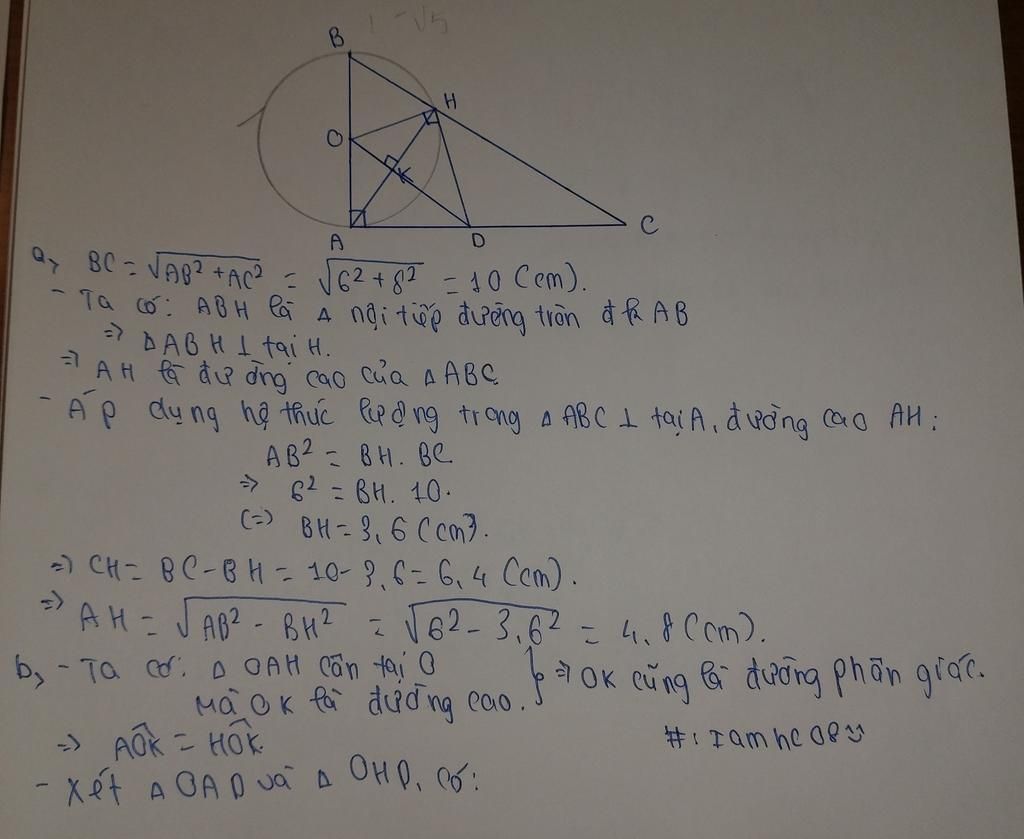 1 - √5
B
H
O
K
A
D
C
a, BC = √AB² + AC² = √6² + 8² = 10 (cm).
- Ta có: ABH là Δ nội tiếp đường tròn đ k AB
=> ΔABH ⊥ tại H.
=> AH là đường cao của Δ ABC
- Áp dụng hệ thức lượng trong Δ ABC ⊥ tại A, đường cao AH:
AB² = BH. BC
=> 6² = BH. 10.
(=) BH = 3,6 (cm).
=> CH = BC - BH = 10 - 3,6 = 6,4 (cm).
=> AH = √AB² - BH² = √6² - 3,6² = 4,8 (cm).
b, - Ta có: Δ OAH cân tại O
mà OK là đường cao. } => OK cũng là đường phân giác.
=> AÔK = HÔK
#: Iamhc08
- Xét Δ OAD và Δ OHD, có: